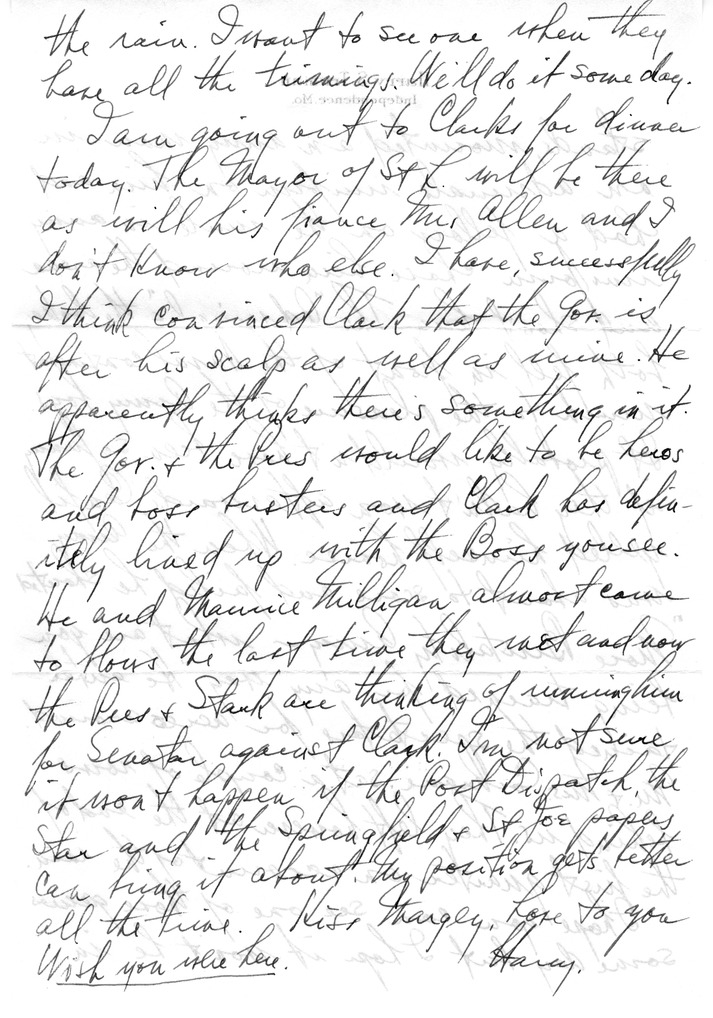 the rain. I want to see one when they
have all the trimings. We'll do it some day.
I am going out to Clarks for dinner
today. The Mayor of St L. will be there
as will his fiance Mrs Allen and I
don't know who else. I have, successfully
I think convinced Clark that the Gov. is
after his scalp as well as mine. He
apparently thinks there's something in it.
The Gov. & the Pres would like to be heros
and boss busters and Clark has defin-
itely lined up with the Boss you see.
He and Maurice Milligan almost came
to blows the last time they met and now
the Pres & Stark are thinking of running him
for Senator against Clark. I'm not sure
it won't happen if the Post Dispatch, the
Star and the Springfield & St Joe papers
can bring it about. My position gets better
all the time. Kiss Margey, love to you
Harry.
Wish you were here.